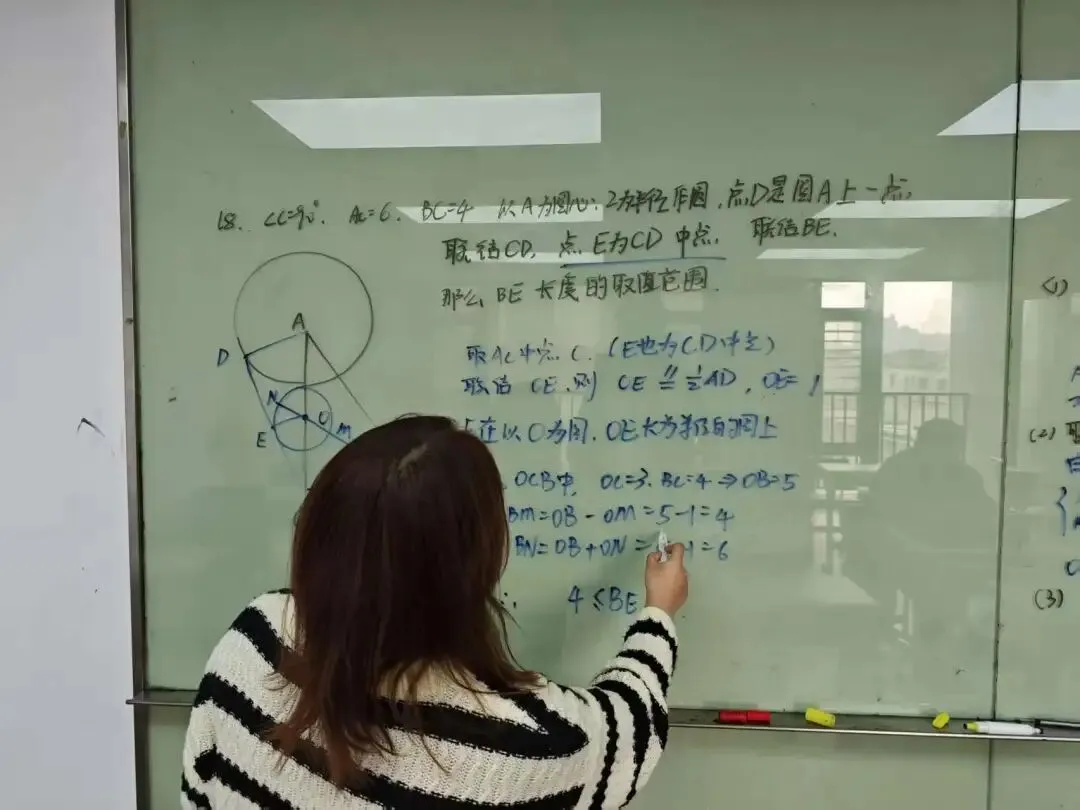 18. ∠C=90°. AC=6. BC=4 以A为圆心, 2为半径作圆, 点D是圆A上一点,
联结CD, 点E为CD中点. 联结BE.
那么BE长度的取值范围.
A
D
N
O
E
M
取AC中点 . (E也为CD中点)
联结OE, 则 OE ∥= ½AD, OE= 1
在以O为圆, OE长为半径的圆上
OCB中, OC=3. BC=4 ⇒ OB=5
BM=OB-OM=5-1=4
BN=OB+ON= 1=6
∴ 4≤BE
(1)
(2)
(3)